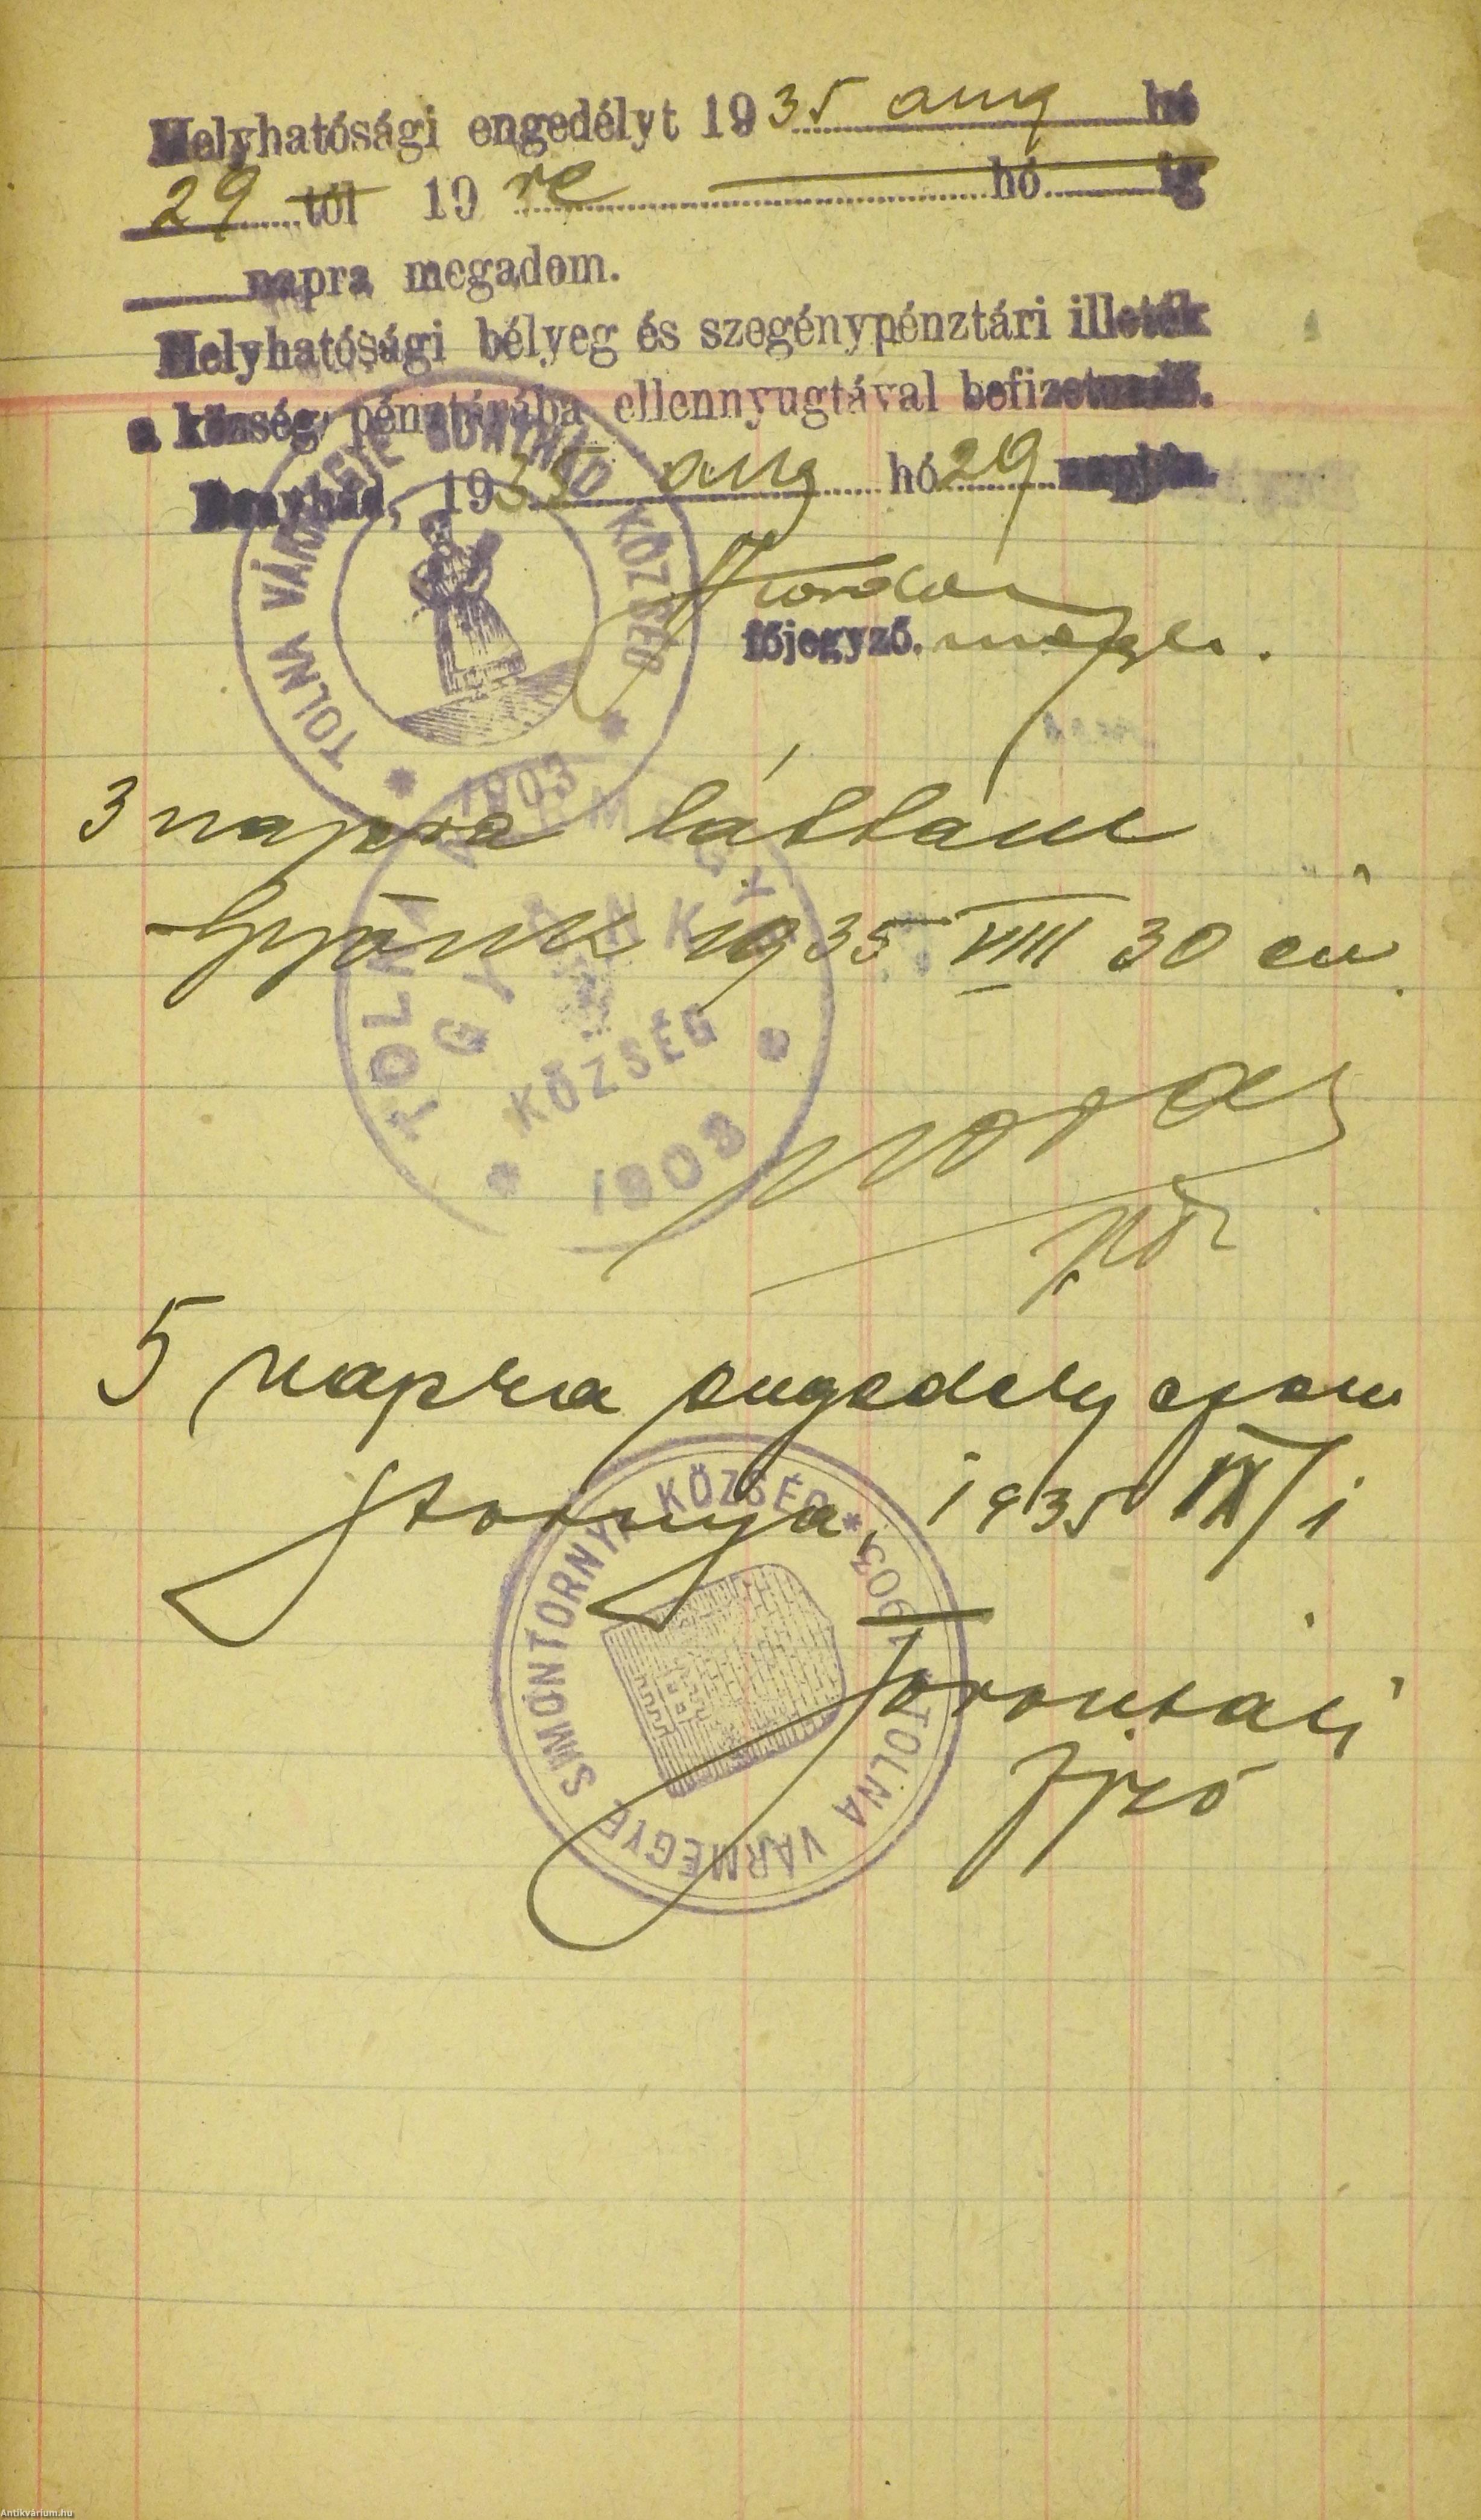 Helyhatósági engedélyt 1935 aug hó
29 től 19 re hó ig
napra megadom.
Helyhatósági bélyeg és szegénypénztári illeték
a község pénztárába ellennyugtával befizetendő.
Bonyhád, 1935 aug hó 29 napján
főjegyző.
TOLNA VÁRMEGYE BONYHÁD KÖZSÉG
1903
3 napra láttam
Gyönk 1935 VIII 30 án
TOLNA VÁRMEGYE
GYÖNK
KÖZSÉG
1903
5 napra engedélyezem
Stornya, 1935 IX/1
SIMONTORNYA KÖZSÉG * 1903
TOLNA VÁRMEGYE
Torontáli
Antikvárium.hu